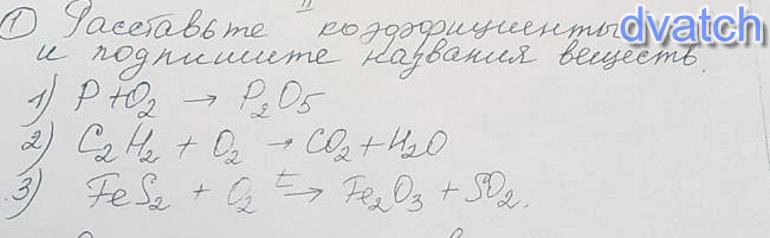 ① Расставьте коэффициенты dvatch
и подпишите названия веществ.
1) P + O₂ → P₂O₅
2) C₂H₂ + O₂ → CO₂ + H₂O
3) FeS₂ + O₂ t→ Fe₂O₃ + SO₂.